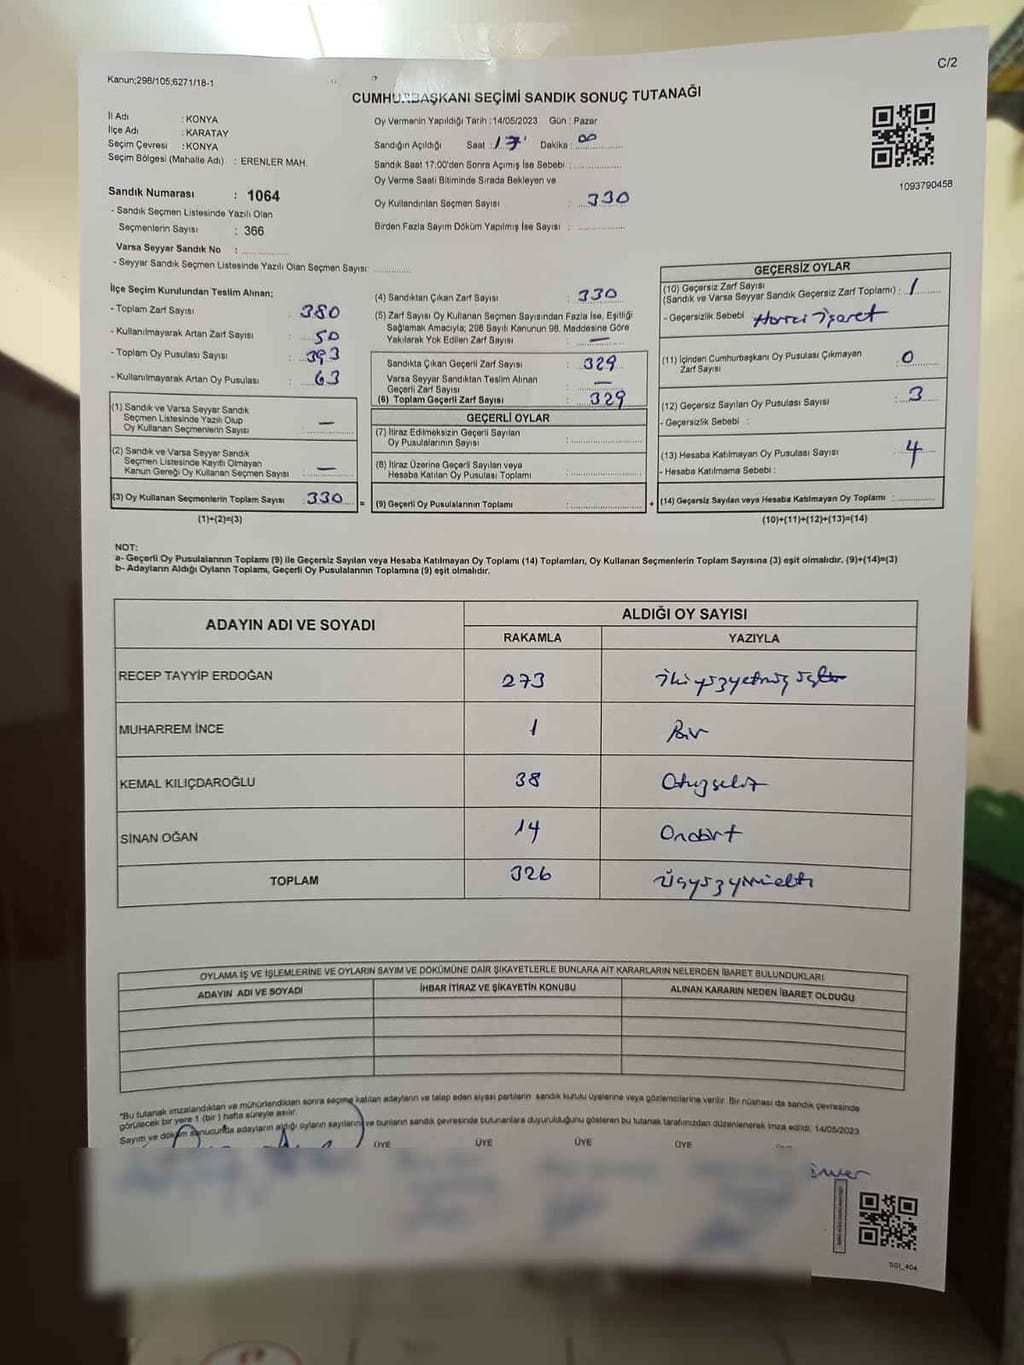 C/2
Kanun;298/105;6271/18-1
CUMHURBAŞKANI SEÇİMİ SANDIK SONUÇ TUTANAĞI
İl Adı : KONYA
İlçe Adı : KARATAY
Seçim Çevresi : KONYA
Seçim Bölgesi (Mahalle Adı) : ERENLER MAH.
Sandık Numarası : 1064
- Sandık Seçmen Listesinde Yazılı Olan
Seçmenlerin Sayısı : 366
Varsa Seyyar Sandık No :
- Seyyar Sandık Seçmen Listesinde Yazılı Olan Seçmen Sayısı:
Oy Vermenin Yapıldığı Tarih :14/05/2023 Gün : Pazar
Sandığın Açıldığı Saat : 17 Dakika : 00
Sandık Saat 17:00'den Sonra Açımış İse Sebebi :
Oy Verme Saati Bitiminde Sırada Bekleyen ve
Oy Kullandırılan Seçmen Sayısı : 330
Birden Fazla Sayım Döküm Yapılmış İse Sayısı :
1093790458
İlçe Seçim Kurulundan Teslim Alınan;
- Toplam Zarf Sayısı : 380
- Kullanılmayarak Artan Zarf Sayısı : 50
- Toplam Oy Pusulası Sayısı : 393
- Kullanılmayarak Artan Oy Pusulası : 63
(1) Sandık ve Varsa Seyyar Sandık
Seçmen Listesinde Yazılı Olup
Oy Kullanan Seçmenlerin Sayısı : —
(2) Sandık ve Varsa Seyyar Sandık
Seçmen Listesinde Kayıtlı Olmayan
Kanun Gereği Oy Kullanan Seçmen Sayısı : —
(3) Oy Kullanan Seçmenlerin Toplam Sayısı : 330 =
(1)+(2)=(3)
(4) Sandıktan Çıkan Zarf Sayısı : 330
(5) Zarf Sayısı Oy Kullanan Seçmen Sayısından Fazla İse, Eşitliği
Sağlamak Amacıyla; 298 Sayılı Kanunun 98. Maddesine Göre
Yakılarak Yok Edilen Zarf Sayısı : —
Sandıkta Çıkan Geçerli Zarf Sayısı : 329
Varsa Seyyar Sandıktan Teslim Alınan
Geçerli Zarf Sayısı : —
(6) Toplam Geçerli Zarf Sayısı : 329
GEÇERLİ OYLAR
(7) İtiraz Edilmeksizin Geçerli Sayılan
Oy Pusulalarının Sayısı :
(8) İtiraz Üzerine Geçerli Sayılan veya
Hesaba Katılan Oy Pusulası Toplamı :
(9) Geçerli Oy Pusulalarının Toplamı : +
GEÇERSİZ OYLAR
(10) Geçersiz Zarf Sayısı
(Sandık ve Varsa Seyyar Sandık Geçersiz Zarf Toplamı) : 1
- Geçersizlik Sebebi : Harici işaret
(11) İçinden Cumhurbaşkanı Oy Pusulası Çıkmayan
Zarf Sayısı : 0
(12) Geçersiz Sayılan Oy Pusulası Sayısı : 3
- Geçersizlik Sebebi :
(13) Hesaba Katılmayan Oy Pusulası Sayısı : 4
- Hesaba Katılmama Sebebi :
(14) Geçersiz Sayılan veya Hesaba Katılmayan Oy Toplamı :
(10)+(11)+(12)+(13)=(14)
NOT:
a- Geçerli Oy Pusulalarının Toplamı (9) ile Geçersiz Sayılan veya Hesaba Katılmayan Oy Toplamı (14) Toplamları, Oy Kullanan Seçmenlerin Toplam Sayısına (3) eşit olmalıdır. (9)+(14)=(3)
b- Adayların Aldığı Oyların Toplamı, Geçerli Oy Pusulalarının Toplamına (9) eşit olmalıdır.
ADAYIN ADI VE SOYADI
ALDIĞI OY SAYISI
RAKAMLA YAZIYLA
RECEP TAYYİP ERDOĞAN 273 ikiyüzyetmişüç
MUHARREM İNCE 1 Bir
KEMAL KILIÇDAROĞLU 38 Otuzsekiz
SİNAN OĞAN 14 Ondört
TOPLAM 326 Üçyüzyirmialtı
OYLAMA İŞ VE İŞLEMLERİNE VE OYLARIN SAYIM VE DÖKÜMÜNE DAİR ŞİKAYETLERLE BUNLARA AİT KARARLARIN NELERDEN İBARET BULUNDUKLARI
ADAYIN ADI VE SOYADI İHBAR İTİRAZ VE ŞİKAYETİN KONUSU ALINAN KARARIN NEDEN İBARET OLDUĞU
*Bu tutanak imzalandıktan ve mühürlendikten sonra seçime katılan adayların ve talep eden siyasi partilerin sandık kurulu üyelerine veya gözlemcilerine verilir. Bir nüshası da sandık çevresinde
görülecek bir yere 1 (bir) hafta süreyle asılır.
Sayım ve döküm sonucunda adayların aldığı oyların sayılarını ve bunların sandık çevresinde bulunanlara duyurulduğunu gösteren bu tutanak tarafımızdan düzenlenerek imza edildi. 14/05/2023
ÜYE ÜYE ÜYE ÜYE